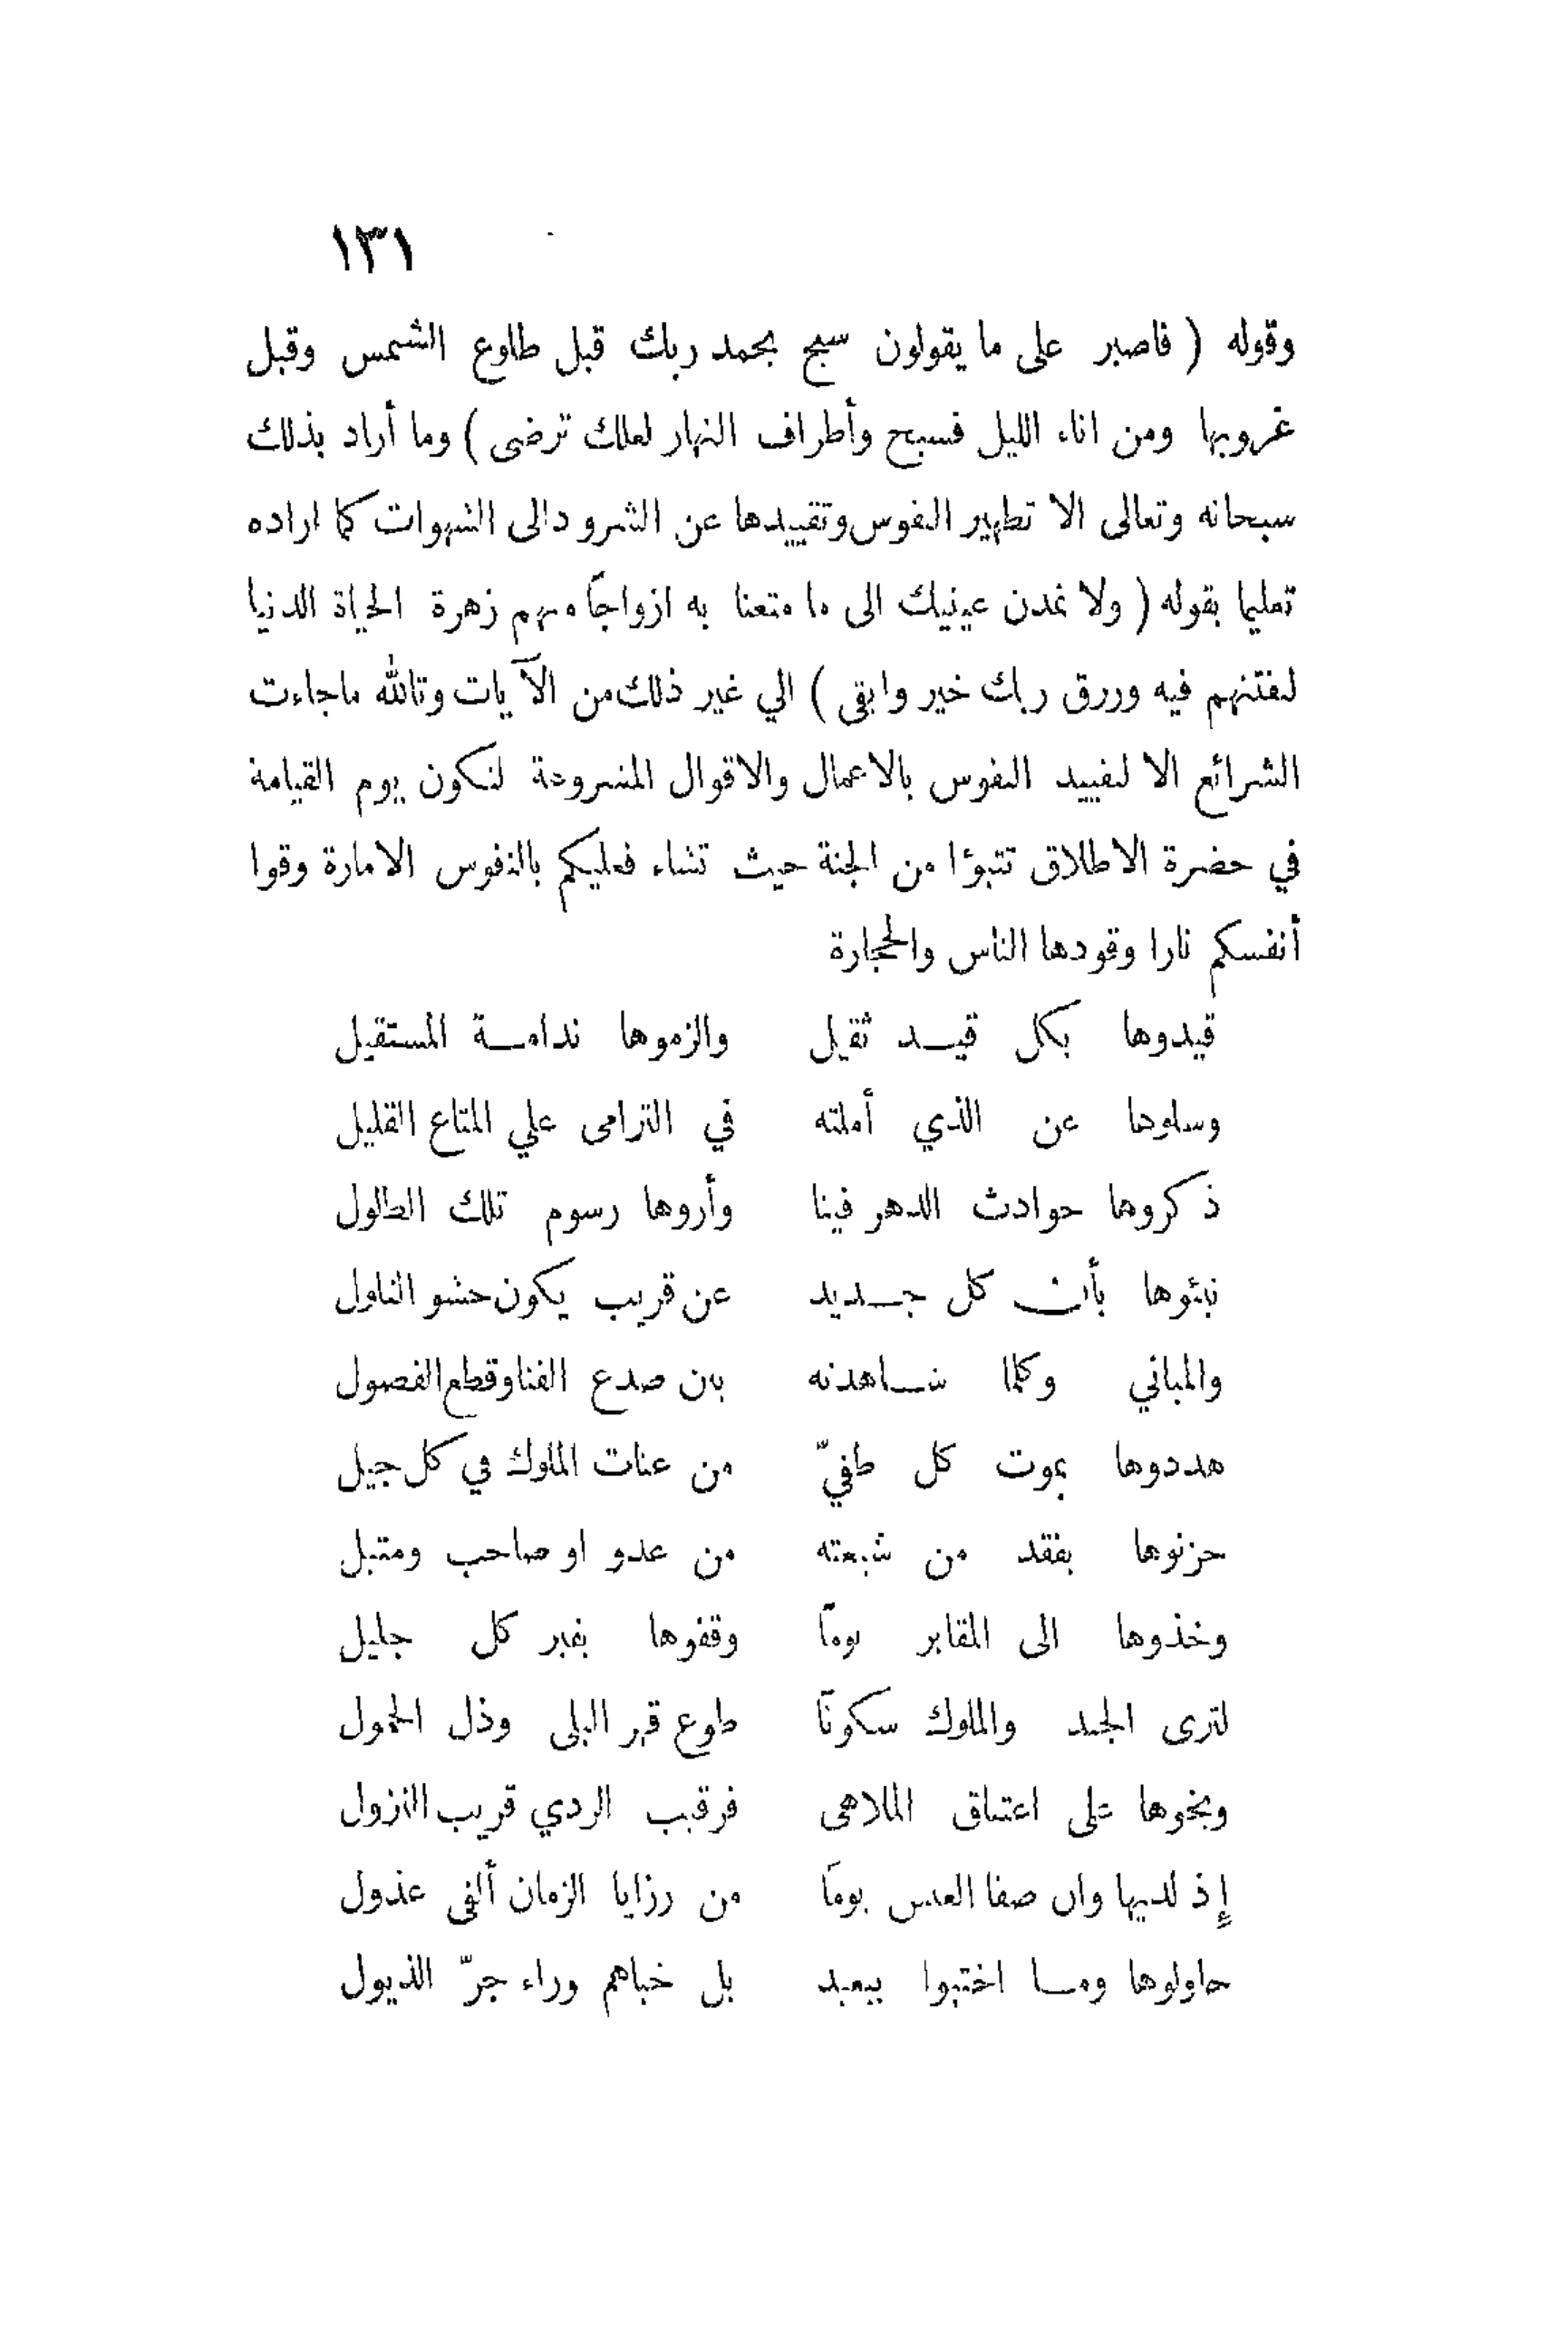 ١٣١
وقوله ( فاصبر على ما يقولون سبح بحمد ربك قبل طلوع الشمس وقبل
غروبها ومن اناء الليل فسبح وأطراف النهار لعلك ترضى ) وما أراد بذلك
سبحانه وتعالى الا تطهير النفوس وتقييدها عن الشرود الى الشهوات كما اراده
تعليما بقوله ( ولا تمدن عينيك الى ما متعنا به ازواجًا منهم زهرة الحياة الدنيا
لنفتنهم فيه ورزق ربك خير وابقى ) الي غير ذلك من الآيات وتالله ما جاءت
الشرائع الا لتقييد النفوس بالاعمال والاقوال المشروعة لتكون يوم القيامة
في حضرة الاطلاق تتبوؤا من الجنة حيث تشاء فعليكم بالنفوس الامارة وقوا
أنفسكم نارا وقودها الناس والحجارة
قيدوها بكل قيد ثقيل والزموها ندامة المستقيل
وسلوها عن الذي أملته في الترامى علي المتاع القليل
ذكروها حوادث الدهر فينا وأروها رسوم تلك الطلول
نبئوها بأن كل جديد عن قريب يكون حشو التلول
والمباني وكلما شاهدته بين صدع الفنا وقطع الفصول
هددوها بموت كل طفيّ من عتات الملوك في كل جيل
حزنوها بفقد من شيعته من عدو او صاحب ومثيل
وخذوها الى المقابر يومًا وقفوها بقبر كل جليل
لترى الجند والملوك سكونًا طوع قهر البلى وذل الخمول
وبخوها على اعتناق الملاهى فرقيب الردي قريب النزول
إذ لديها وان صفا العيش يومًا من رزايا الزمان ألفى عذول
حاولوها وما اختبوا ببعيد بل خباهم وراء جرّ الذيول